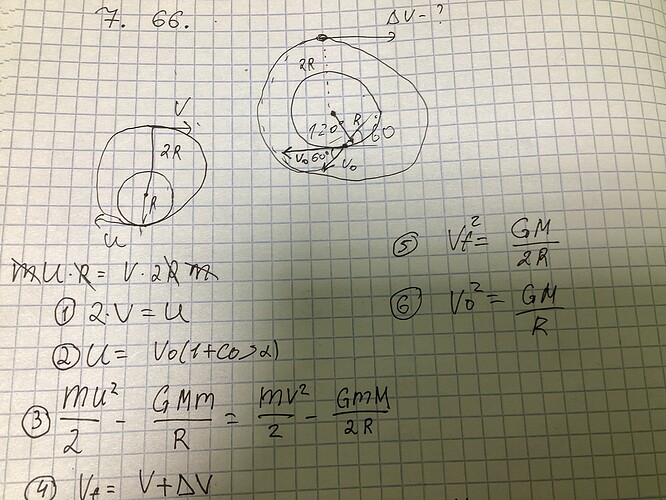 7. 66.
ΔV-?
2R
120°
R
60
V₀
60°
V₀
V
2R
R
U
mU·R = V·2R m
① 2·V = U
② U = V₀(1+cosα)
③ mu²/2 - GMm/R = mv²/2 - GmM/2R
④ Vf = V+ΔV
⑤ Vf² = GM/2R
⑥ V₀² = GM/R